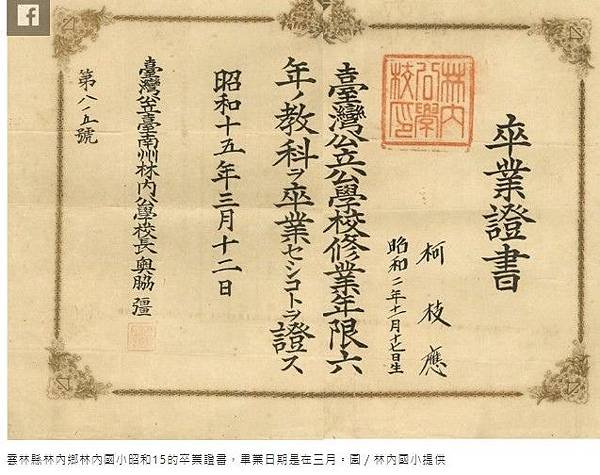 卒業證書
柯枝應
昭和二年十一月十七日生
林內公學校印
臺灣公立公學校修業年限六
年ノ教科ヲ卒業セシコトヲ證ス
昭和十五年三月十二日
臺灣公立臺南州林內公學校長奧脇彊
第八一五號
雲林縣林內鄉林內國小昭和15的卒業證書，畢業日期是在三月。圖／林內國小提供